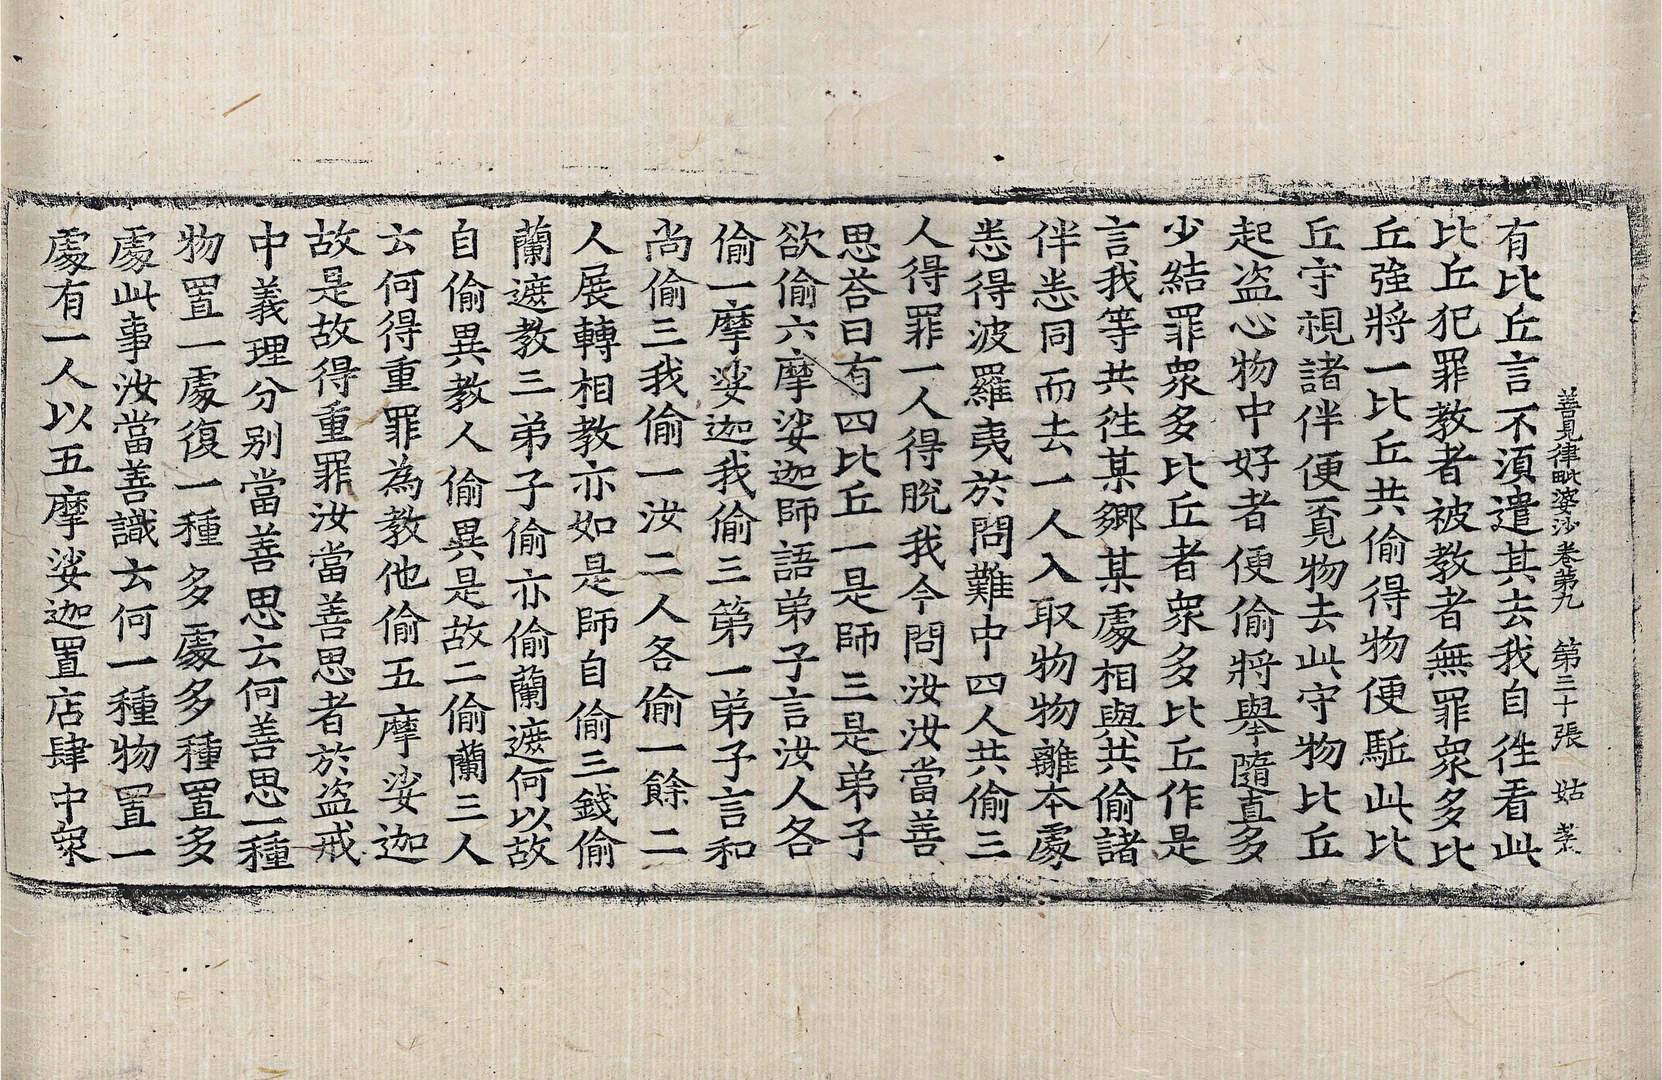 善見律毗婆沙卷第九　第三十張　姑
有比丘言不湏遣其去我自徃看此
比丘犯罪教者被教者無罪衆多比
丘強將一比丘共偷得物便駈此比
丘守視諸伴便覔物去此守物比丘
起盗心物中好者便偷將舉隨直多
少結罪衆多比丘者衆多比丘作是
言我等共徃某鄉某處相與共偷諸
伴恙同而去一人入取物物離本處
恙得波羅夷於問難中四人共偷三
人得罪一人得脫我今問汝汝當善
思荅曰有四比丘一是師三是弟子
欲偷六摩娑迦師語弟子言汝人各
偷一摩娑迦我偷三第一弟子言和
尚偷三我偷一汝二人各偷一餘二
人展轉相教亦如是師自偷三錢偷
蘭遮教三弟子偷亦偷蘭遮何以故
自偷異教人偷異是故二偷蘭三人
云何得重罪為教他偷五摩娑迦
故是故得重罪汝當善思者於盗戒
中義理分別當善思云何善思一種
物置一處復一種多處多種置多
處此事汝當善識云何一種物置一
處有一人以五摩娑迦置店肆中衆